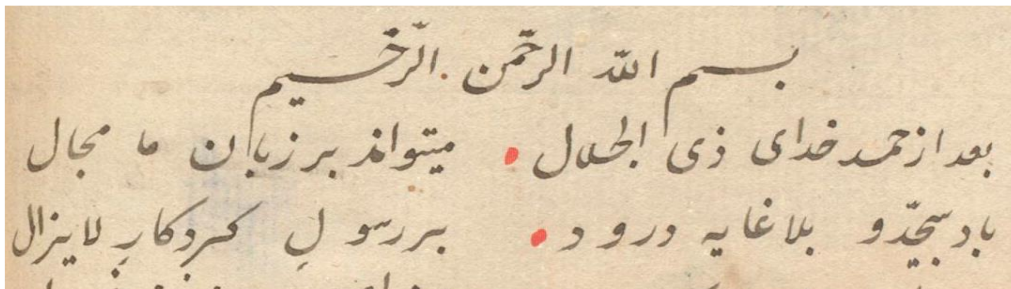 بسم الله الرحمن الرحيم
بعد از حمد خدای ذی الجلال . میتواند بر زبان ما مجال
باد بیحدّ و بلاغایه درود . بر رسولِ کردکارِ لایزال